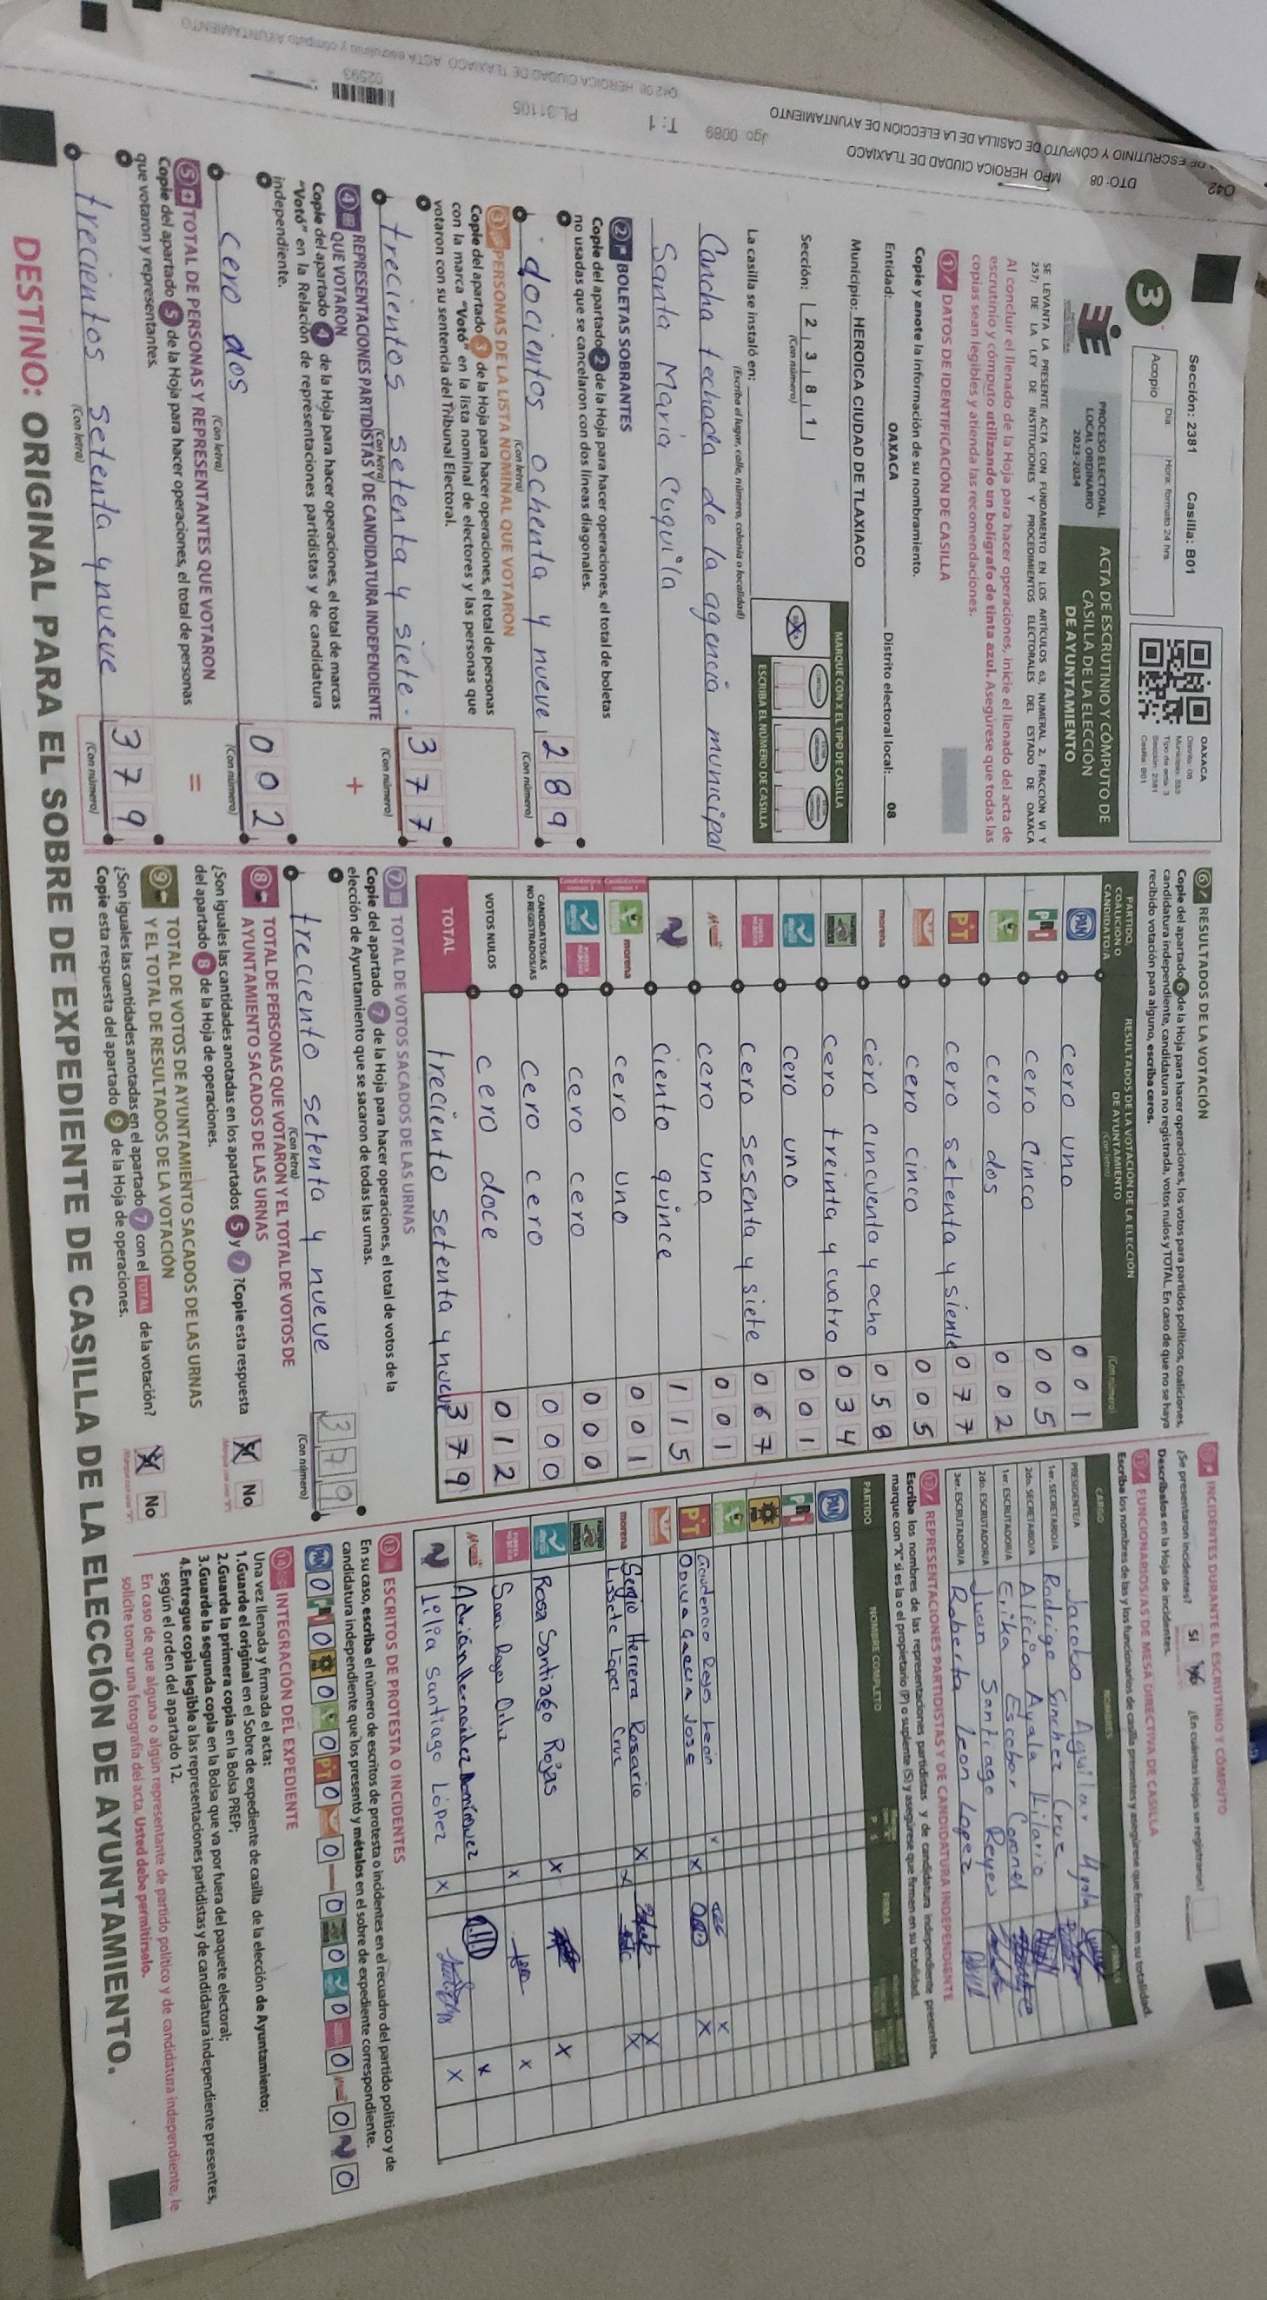 Sección: 2381 Casilla: B01
Acopio Día: Hora: formato 24 hrs.
OAXACA
Distrito: 08
Tipo de acta: 3
Sección: 2381
Casilla: B01
3
PROCESO ELECTORAL
LOCAL ORDINARIO
2023-2024
ACTA DE ESCRUTINIO Y CÓMPUTO DE
CASILLA DE LA ELECCIÓN
DE AYUNTAMIENTO
SE LEVANTA LA PRESENTE ACTA CON FUNDAMENTO EN LOS ARTÍCULOS 63, NUMERAL 2, FRACCIÓN VI Y
257; DE LA LEY DE INSTITUCIONES Y PROCEDIMIENTOS ELECTORALES DEL ESTADO DE OAXACA
Al concluir el llenado de la Hoja para hacer operaciones, inicie el llenado del acta de
escrutinio y cómputo utilizando un bolígrafo de tinta azul. Asegúrese que todas las
copias sean legibles y atienda las recomendaciones.
1 DATOS DE IDENTIFICACIÓN DE CASILLA
Copie y anote la información de su nombramiento.
Entidad: OAXACA Distrito electoral local: 08
Municipio: HEROICA CIUDAD DE TLAXIACO
Sección: 2 3 8 1
(Con número)
MARQUE CON X EL TIPO DE CASILLA
X
ESCRIBA EL NÚMERO DE CASILLA
La casilla se instaló en:
(Escriba el lugar, calle, número, colonia o localidad)
Cancha techada de la agencia municipal
Santa Maria Cuquila
2 BOLETAS SOBRANTES
Copie del apartado 2 de la Hoja para hacer operaciones, el total de boletas
no usadas que se cancelaron con dos líneas diagonales.
docientos ochenta y nueve 289
(Con letra) (Con número)
3 PERSONAS DE LA LISTA NOMINAL QUE VOTARON
Copie del apartado 3 de la Hoja para hacer operaciones, el total de personas
con la marca "Votó" en la lista nominal de electores y las personas que
votaron con su sentencia del Tribunal Electoral.
trecientos setenta y siete 377
(Con letra) (Con número)
4 REPRESENTACIONES PARTIDISTAS Y DE CANDIDATURA INDEPENDIENTE
QUE VOTARON +
Copie del apartado 4 de la Hoja para hacer operaciones, el total de marcas
"Votó" en la Relación de representaciones partidistas y de candidatura
independiente.
cero dos 002
(Con letra) (Con número)
5 TOTAL DE PERSONAS Y REPRESENTANTES QUE VOTARON =
Copie del apartado 5 de la Hoja para hacer operaciones, el total de personas
que votaron y representantes.
trecientos setenta y nueve 379
(Con letra) (Con número)
6 RESULTADOS DE LA VOTACIÓN
Copie del apartado 6 de la Hoja para hacer operaciones, los votos para partidos políticos, coaliciones,
candidatura independiente, candidatura no registrada, votos nulos y TOTAL. En caso de que no se haya
recibido votación para alguno, escriba ceros.
PARTIDO, COALICIÓN O CANDIDATO/A
RESULTADOS DE LA VOTACIÓN DE LA ELECCIÓN DE AYUNTAMIENTO
(Con letra) (Con número)
PAN cero uno 001
PRI cero cinco 005
cero dos 002
PT cero setenta y siente 077
cero cinco 005
morena cero cincuenta y ocho 058
cero treinta y cuatro 034
cero uno 001
cero sesenta y siete 067
cero una 001
ciento quince 115
morena cero uno 001
cero cero 000
CANDIDATOS/AS NO REGISTRADOS/AS cero cero 000
VOTOS NULOS cero doce 012
TOTAL treciento setenta y nueve 379
7 TOTAL DE VOTOS SACADOS DE LAS URNAS
Copie del apartado 7 de la Hoja para hacer operaciones, el total de votos de la
elección de Ayuntamiento que se sacaron de todas las urnas.
treciento setenta y nueve 379
(Con letra) (Con número)
8 TOTAL DE PERSONAS QUE VOTARON Y EL TOTAL DE VOTOS DE
AYUNTAMIENTO SACADOS DE LAS URNAS
¿Son iguales las cantidades anotadas en los apartados 5 y 7 ?Copie esta respuesta
del apartado 8 de la Hoja de operaciones. X No
9 TOTAL DE VOTOS DE AYUNTAMIENTO SACADOS DE LAS URNAS
Y EL TOTAL DE RESULTADOS DE LA VOTACIÓN
¿Son iguales las cantidades anotadas en el apartado 7 con el TOTAL de la votación?
Copie esta respuesta del apartado 9 de la Hoja de operaciones. X No
INCIDENTES DURANTE EL ESCRUTINIO Y CÓMPUTO
¿Se presentaron incidentes? Sí ¿En cuántas Hojas se registraron?
Descríbalos en la Hoja de incidentes.
FUNCIONARIOS/AS DE MESA DIRECTIVA DE CASILLA
Escriba los nombres de las y los funcionarios de casilla presentes y asegúrese que firmen en su totalidad.
CARGO NOMBRES FIRMAS
PRESIDENTE/A Jacobo Aguilar Ayala
1er. SECRETARIO/A Rodrigo Sanchez Cruz
2do. SECRETARIO/A Alicia Ayala Hilario
1er. ESCRUTADOR/A Erika Escobar Coronel
2do. ESCRUTADOR/A Juan Santiago Reyes
3er. ESCRUTADOR/A Roberta Leon Lopez
12 REPRESENTACIONES PARTIDISTAS Y DE CANDIDATURA INDEPENDIENTE
Escriba los nombres de las representaciones partidistas y de candidatura independiente presentes,
marque con "X" si es la o el propietario (P) o suplente (S) y asegúrese que firmen en su totalidad.
PARTIDO NOMBRE COMPLETO P S FIRMA
PAN
PRI
Gaudencio Reyes Leon
PT Garcia Jose X X
morena Sergio Herrera Rosario X X
Lissete Lopez Cruz X X
Rosa Santiago Rojas X X
X X
Adrián Hernández X
Lilia Santiago López X X
ESCRITOS DE PROTESTA O INCIDENTES
En su caso, escriba el número de escritos de protesta o incidentes en el recuadro del partido político y de
candidatura independiente que los presentó y métalos en el sobre de expediente correspondiente.
PAN 0 0 0 0 PT 0 0 0 0 0 0 0 0
14 INTEGRACIÓN DEL EXPEDIENTE
Una vez llenada y firmada el acta:
1.Guarde el original en el Sobre de expediente de casilla de la elección de Ayuntamiento;
2.Guarde la primera copia en la Bolsa PREP;
3.Guarde la segunda copia en la Bolsa que va por fuera del paquete electoral;
4.Entregue copia legible a las representaciones partidistas y de candidatura independiente presentes,
según el orden del apartado 12.
En caso de que alguna o algún representante de partido político y de candidatura independiente, le
solicite tomar una fotografía del acta, Usted debe permitírselo.
DESTINO: ORIGINAL PARA EL SOBRE DE EXPEDIENTE DE CASILLA DE LA ELECCIÓN DE AYUNTAMIENTO.
042 DTO: 08 MPO HEROICA CIUDAD DE TLAXIACO
DE ESCRUTINIO Y CÓMPUTO DE CASILLA DE LA ELECCIÓN DE AYUNTAMIENTO
Jgo: 0089 T: 1 PL:31105
02593